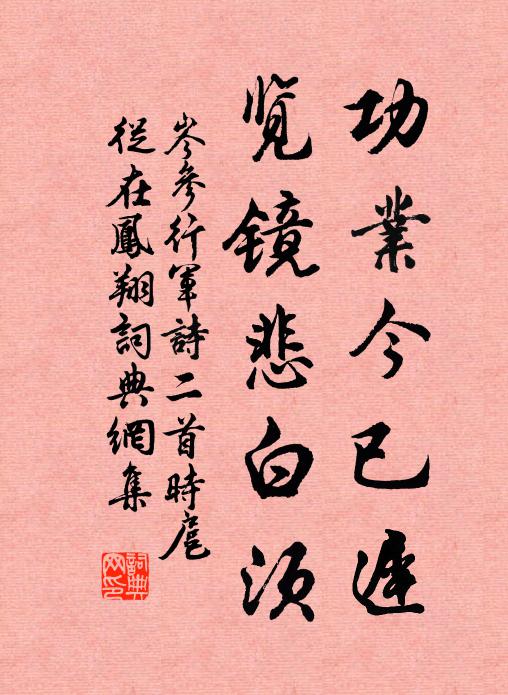 功業今已遲
覽鏡悲白須
岑參行軍詩二首時扈
從在鳳翔詞典網集
詞典
网印